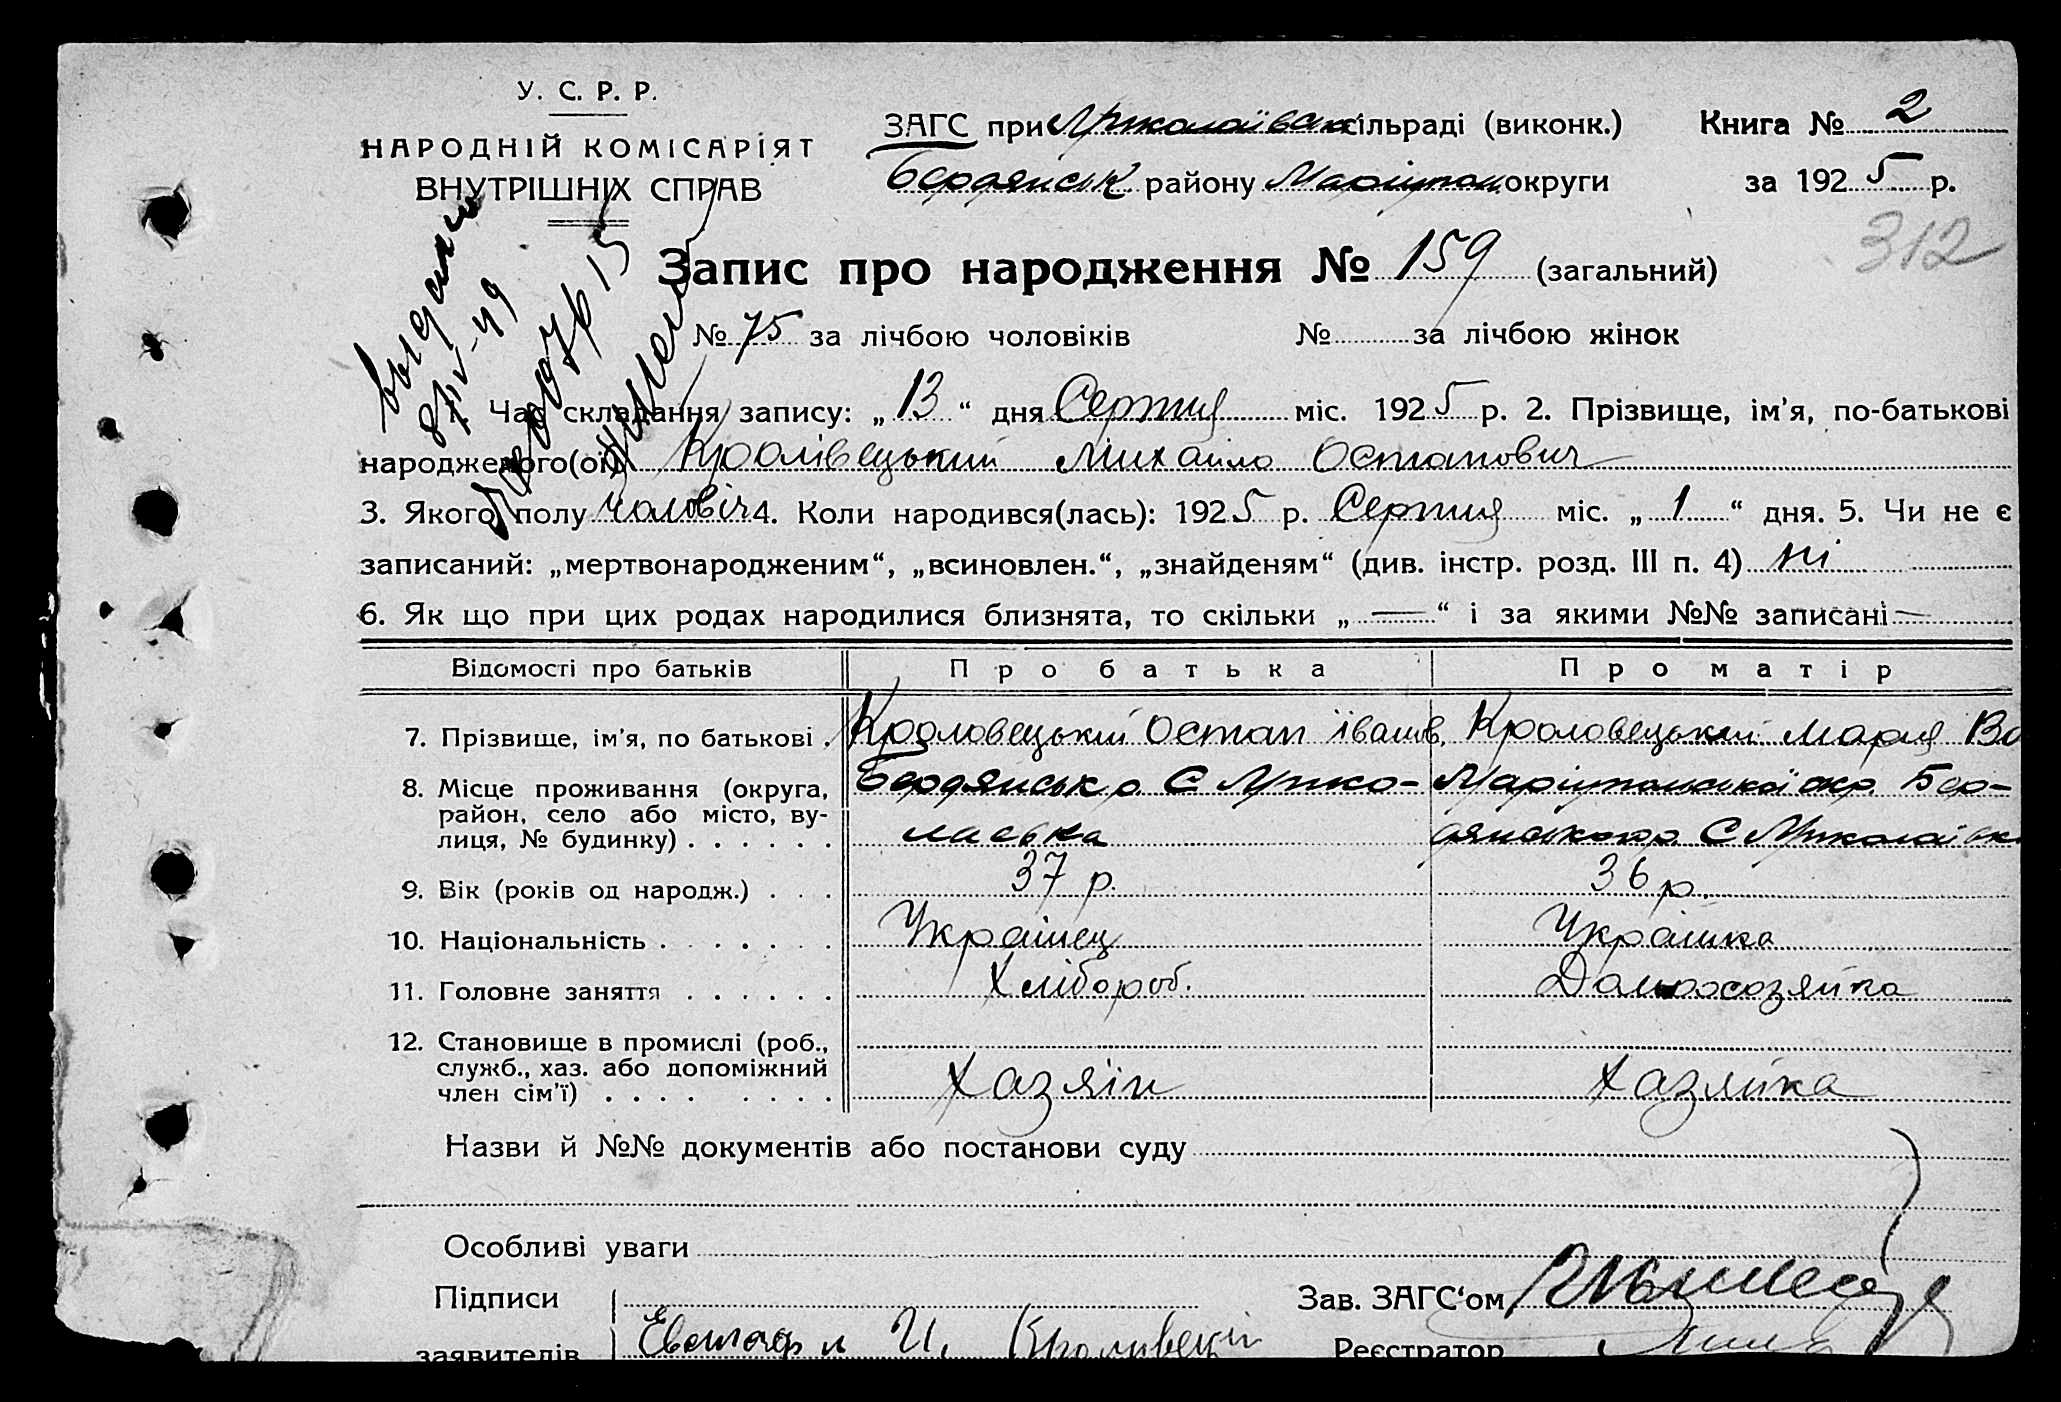 У. С. Р. Р.
НАРОДНІЙ КОМІСАРІЯТ
ВНУТРІШНІХ СПРАВ
ЗАГС при Миколаївск сільраді (виконк.)
Бердянськ району Маріупол округи
Книга № 2
за 1925 р.
312
Запис про народження № 159 (загальний)
№ 75 за лічбою чоловіків № за лічбою жінок
1. Час складання запису: „13“ дня Серпня міс. 1925 р. 2. Прізвище, ім’я, по-батькові
народженого(ої) Кролівецький Михайло Остапович
3. Якого полу чоловіч 4. Коли народився(лась): 1925 р. Серпня міс. „1“ дня. 5. Чи не є
записаний: „мертвонародженим“, „всиновлен.“, „знайденям“ (див. інстр. розд. III п. 4) ні
6. Як що при цих родах народилися близнята, то скільки „—“ і за якими №№ записані —
Відомості про батьків Про батька Про матір
7. Прізвище, ім’я, по батькові . Кроловецький Остап Іванів. Кроловецький Мария Ва
8. Місце проживання (округа, Бердянськ р. С Мико- Маріупольської окр. Бер-
район, село або місто, ву-
лиця, № будинку) . . . . . . дянського р. С Миколаївк
9. Вік (років од народж.) . . . 37 р. 36 р.
10. Національність . . . . . . . Українец Українка
11. Головне заняття . . . . . . Хлібороб. Домохозяйка
12. Становище в промислі (роб.,
служб., хаз. або допоміжний
член сім’ї) . . . . . . . . Хазяїн Хазяйка
Назви й №№ документів або постанови суду
Особливі уваги
Підписи
Зав. ЗАГС‘ом
заявителів Евстафи И. Кроливецкій
Реєстратор
выдано